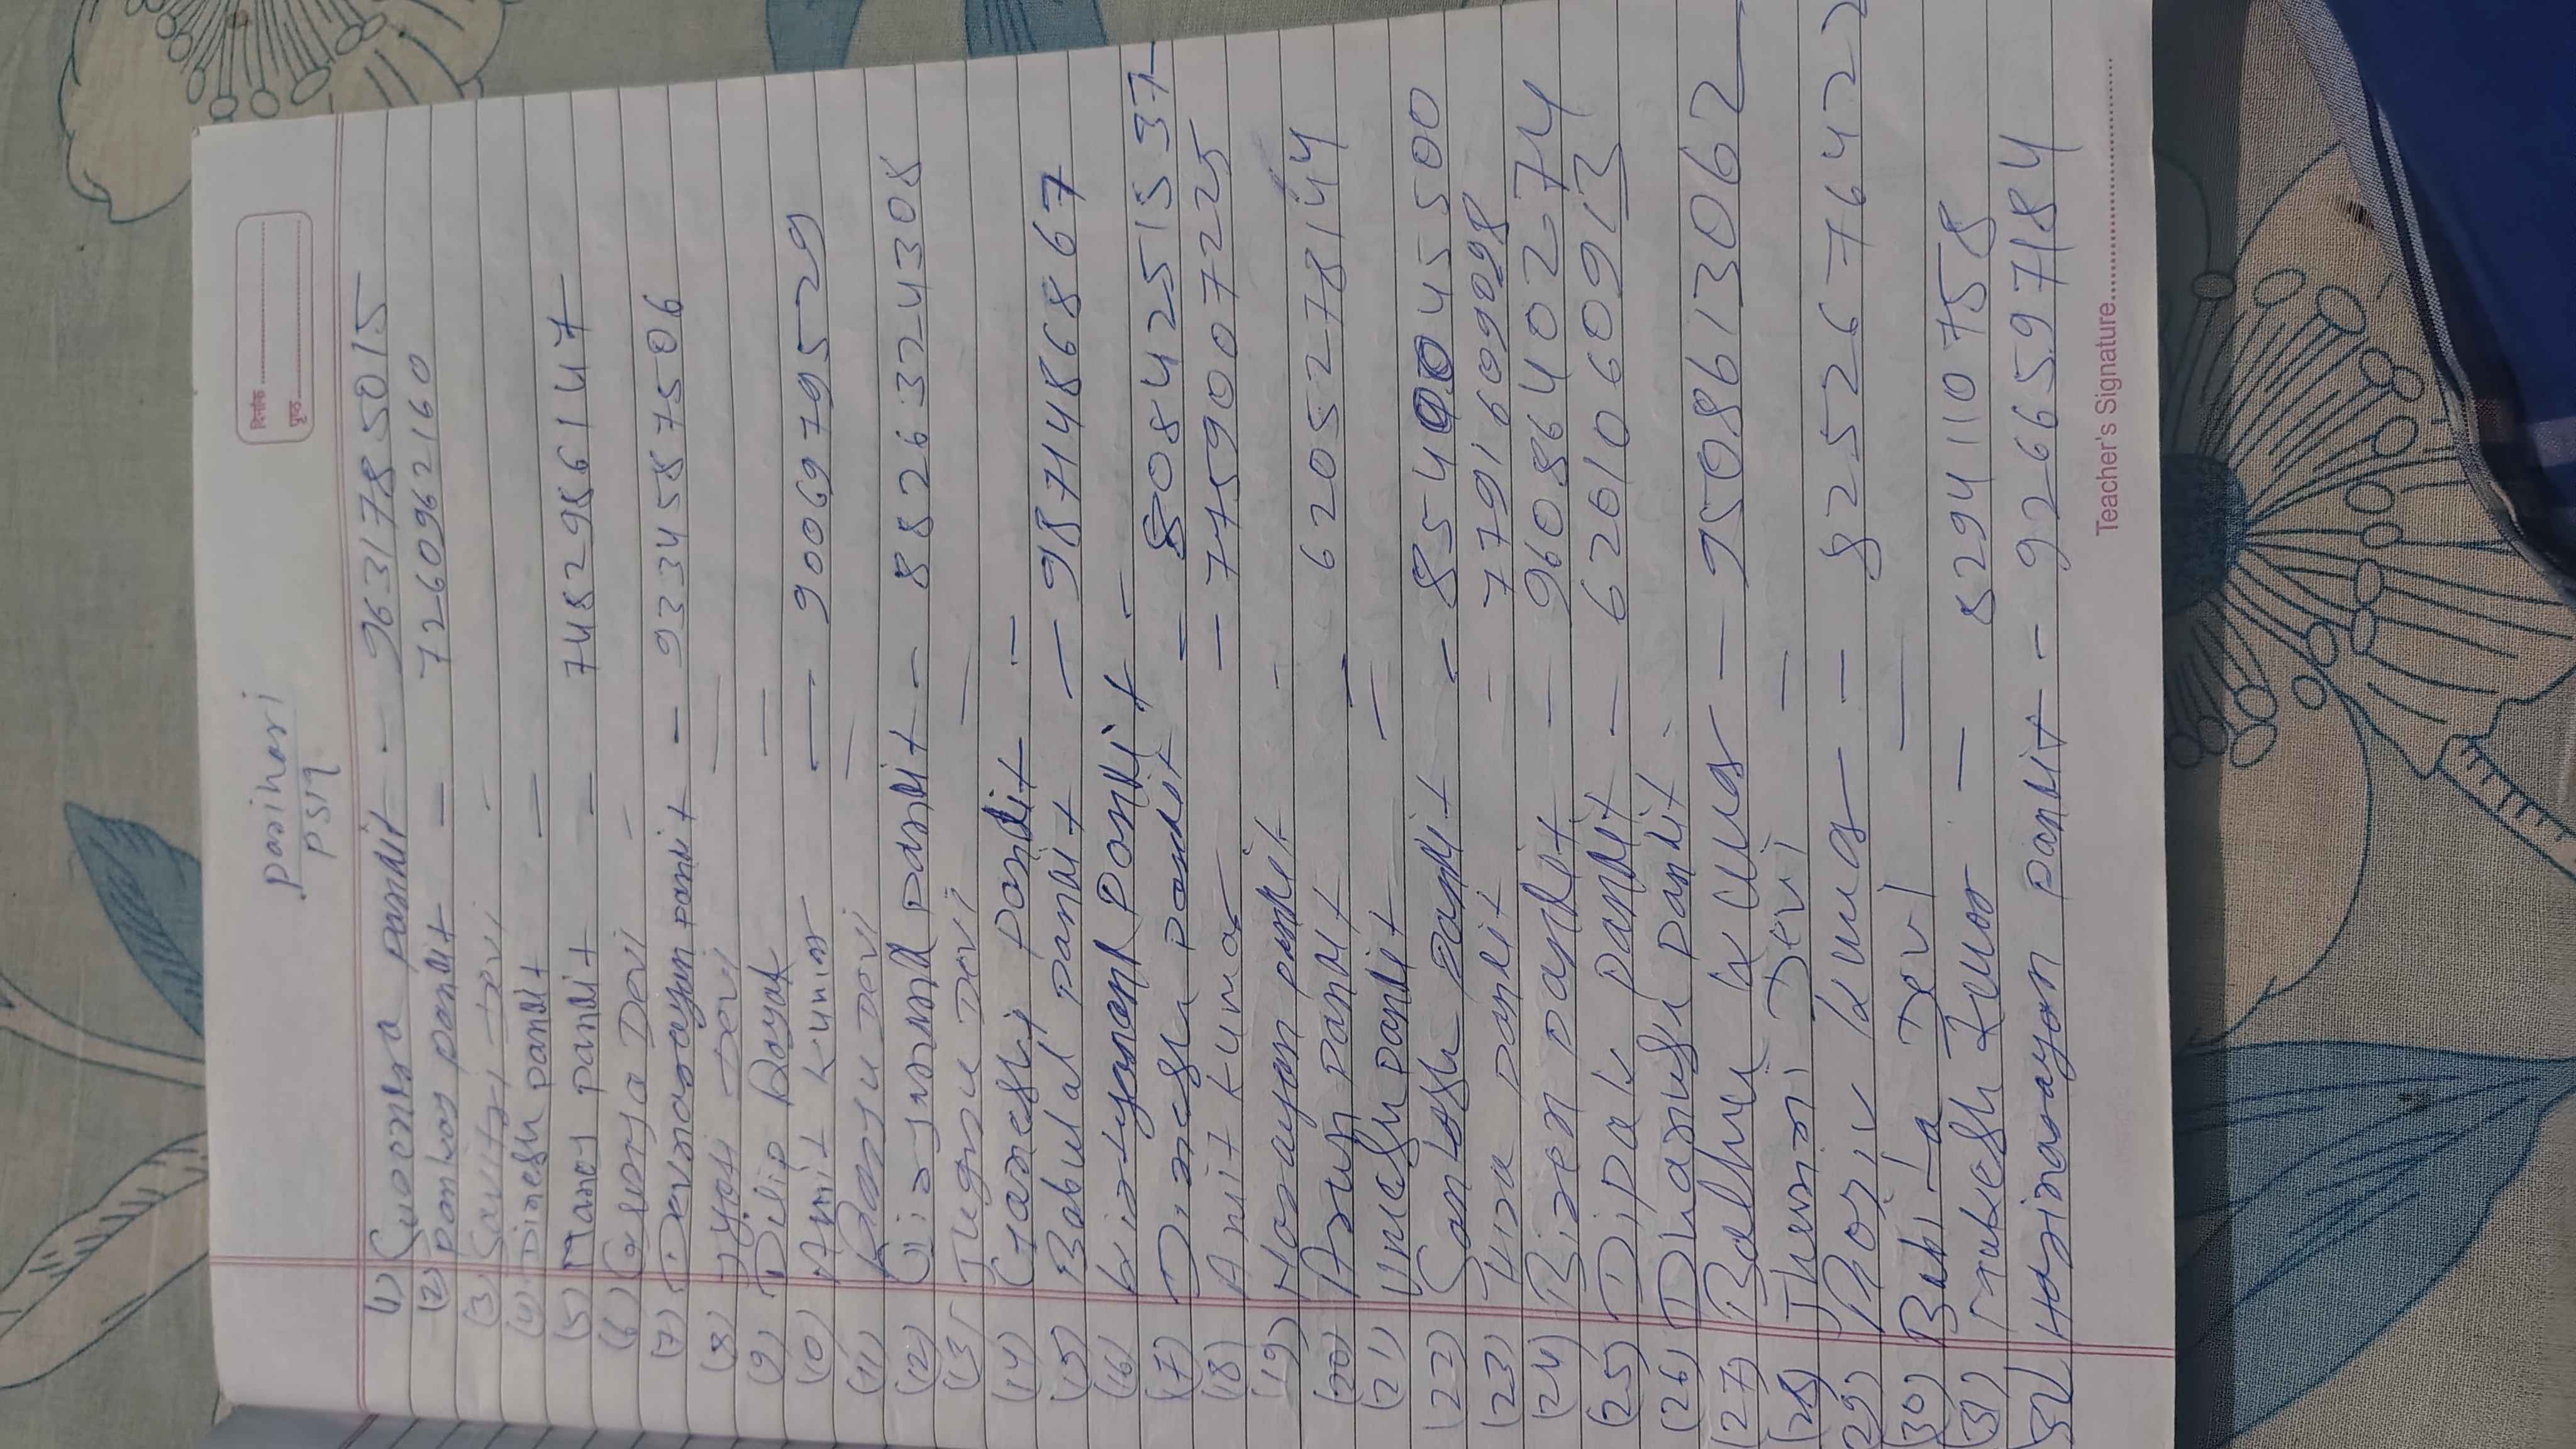 दिनांक
पृष्ठ
parihari
PS19
(1) pandit - 9631785015
(2) Pankaj pandit - 7260962160
(3) Savitri Devi -
(4) Dinesh pandit -
(5) Manoj pandit - 7482986147
(6) Devi -
(7) Devnarayan pandit - 9334587506
(8) Jyoti Devi -
(9) Dilip -
(10) Amit Kumar - 9006979529
(11) Devi -
(12) pandit - 8826324308
(13) Devi -
(14) Ganesh pandit -
(15) Babulal pandit - 9871486867
(16) Kirtyanand Pandit -
(17) pandit - 8084251537
(18) Anit Kumar - 7759007225
(19) Narayan pandit -
(20) Arun pandit - 6205278144
(21) Umesh pandit -
(22) Santosh pandit - 045500
(23) Hira pandit - 7791609098
(24) Biren pandit - 9608640274
(25) Dipak pandit - 6201060913
(26) pandit -
(27) Kumar - 9508613062
(28) Devi -
(29) Kumar - 8252676422
(30) Devi -
(31) Mukesh Kumar - 8294110758
32 Harinarayan pandit - 9266597184
Teacher's Signature